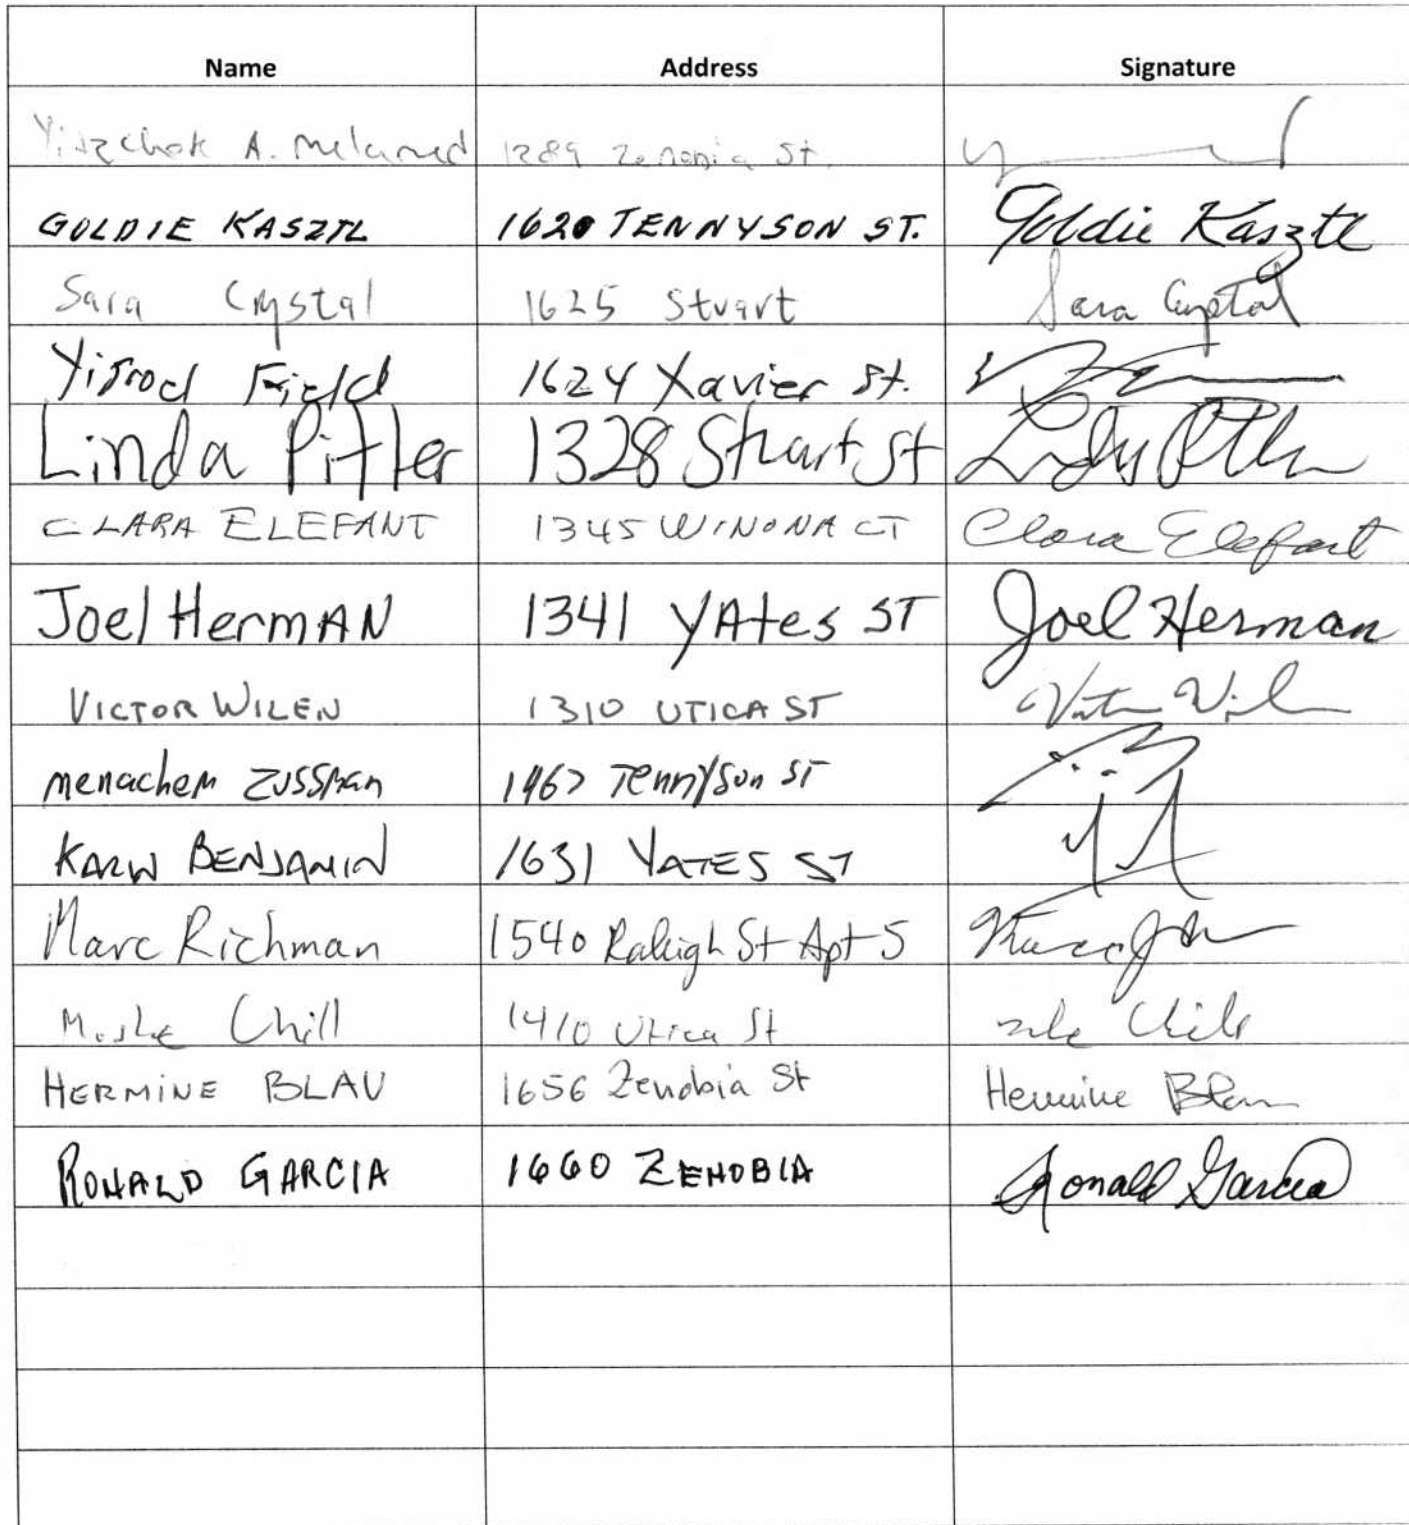 Name Address Signature
Yitzchok A. Melamed 1289 Zenobia St.
GOLDIE KASZTL 1620 TENNYSON ST. Goldie Kasztl
Sara Crystal 1625 Stuart Sara Crystal
Field 1624 Xavier St.
Linda Pitler 1328 Stuart St
CLARA ELEFANT 1345 WINONA CT Clara Elefant
Joel HermAN 1341 YAtes ST Joel Herman
VICTOR WILEN 1310 UTICA ST
menachem ZUSSMan Tennyson ST
BENJAMIN 1631 YATES ST
Marc Richman 1540 Raleigh St Apt 5
Moshe Chill 1410 Utica St
HERMINE BLAU 1656 Zenobia St Hermine Blau
RONALD GARCIA 1660 ZENOBIA Ronald Garcia